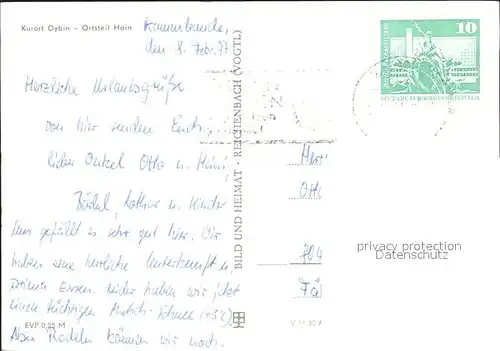 Kurort Oybin – Ortsteil Hain
den 8. Febr. 77
Herzliche Urlaubsgrüße
von hier senden Euch,
lieber Onkel Otto u.
Bärbel, Lothar u. Kinder
Uns gefällt es sehr gut hier. Wir
haben eine herrliche Unterkunft u.
prima Essen. Leider haben wir jetzt
einen richtigen Matsch-Schnee (+5°C).
Aber Rodeln können wir noch.
EVP 0,25 M
BILD UND HEIMAT · REICHENBACH (VOGTL)
10
DEUTSCHE DEMOKRATISCHE REPUBLIK
Herr
Otto
privacy protection
Datenschutz